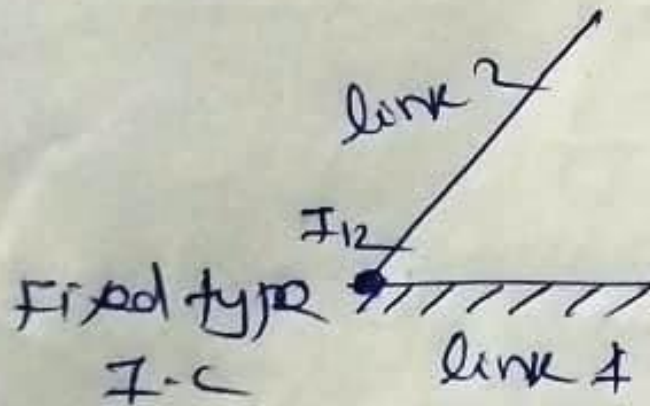 link 2
I12
Fixed type
I-C
link 1